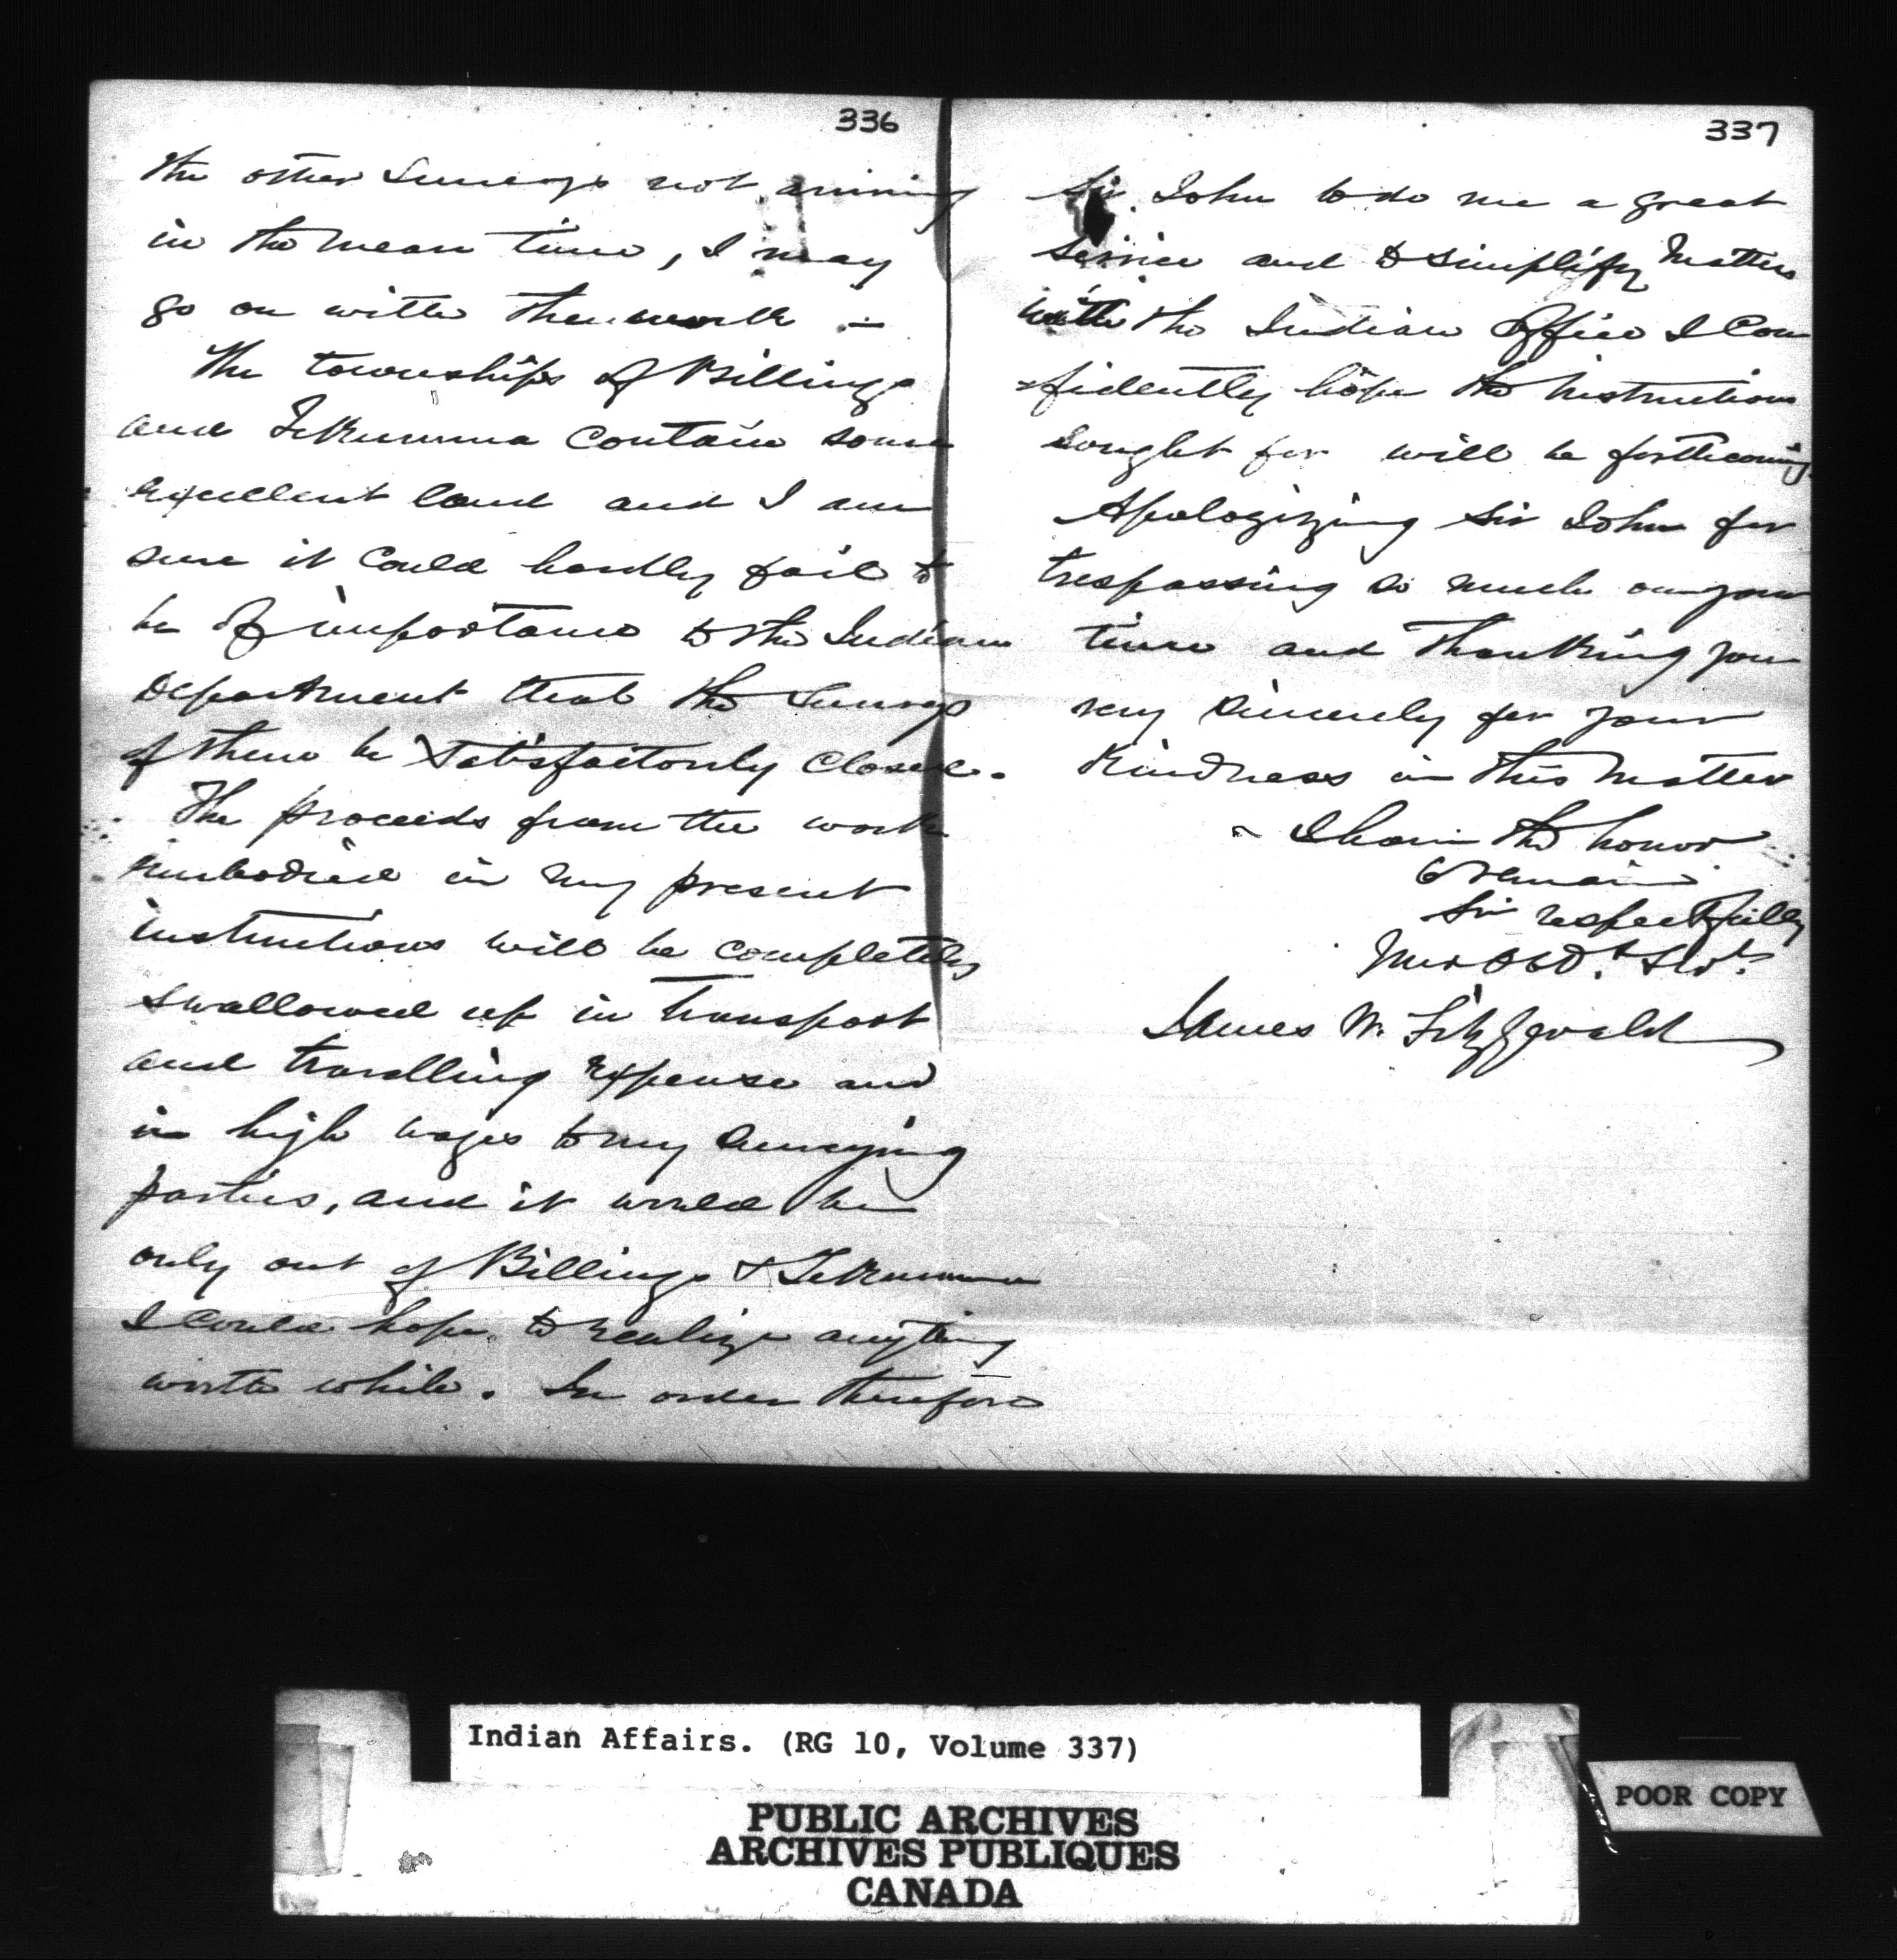 336
the other Surveys not arriving
in the mean time, I may
go on with the work –
The townships of Billings
and Tekumma contain some
excellent land and I am
sure it could hardly fail to
be of importance to the Indian
Department that the Surveys
of them be satisfactorily closed.
The proceeds from the work
embodied in my present
instructions will be completely
swallowed up in transport
and travelling expense and
in high wages to my surveying
parties, and it would be
only out of Billings & Tekumma
I could hope to realize anything
worth while. In order therefore
337
Sir John to do me a great
service and to simplify matters
with the Indian Office I con
fidently hope the instructions
sought for will be forthcoming
Apologizing Sir John for
trespassing so much on your
time and thanking you
very sincerely for your
kindness in this matter
I have the honor
to remain
Sir respectfully
Your Obdt. Svt.
James W. Fitzgerald
Indian Affairs. (RG 10, Volume 337)
PUBLIC ARCHIVES
ARCHIVES PUBLIQUES
CANADA
POOR COPY